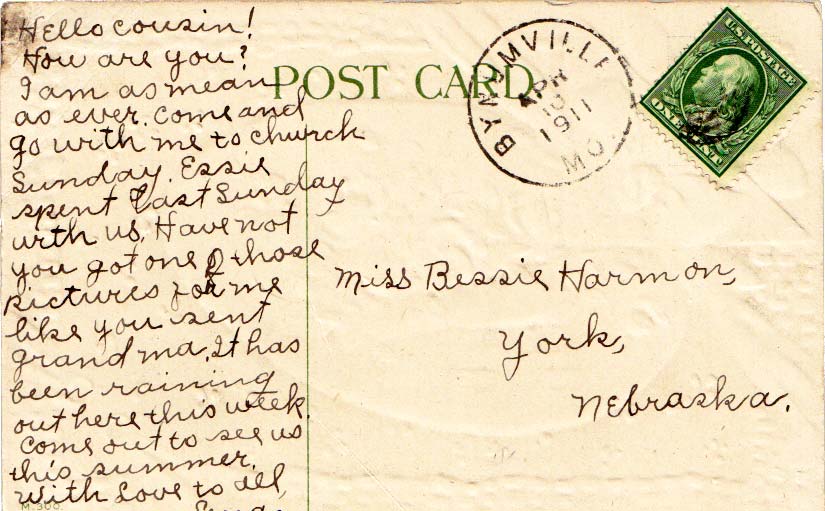 Hello cousin!
How are you?
I am as mean
as ever. Come and
go with me to church
Sunday. Essie
spent last Sunday
with us. Have not
you got one of those
pictures for me
like you sent
grandma. It has
been raining
out here this week.
Come out to see us
this summer.
With Love to all,
M. 300.
POST CARD.
BYNUMVILLE
APR
10
1911
MO.
U.S. POSTAGE
ONE CENT
Miss Bessie Harmon,
York,
Nebraska.